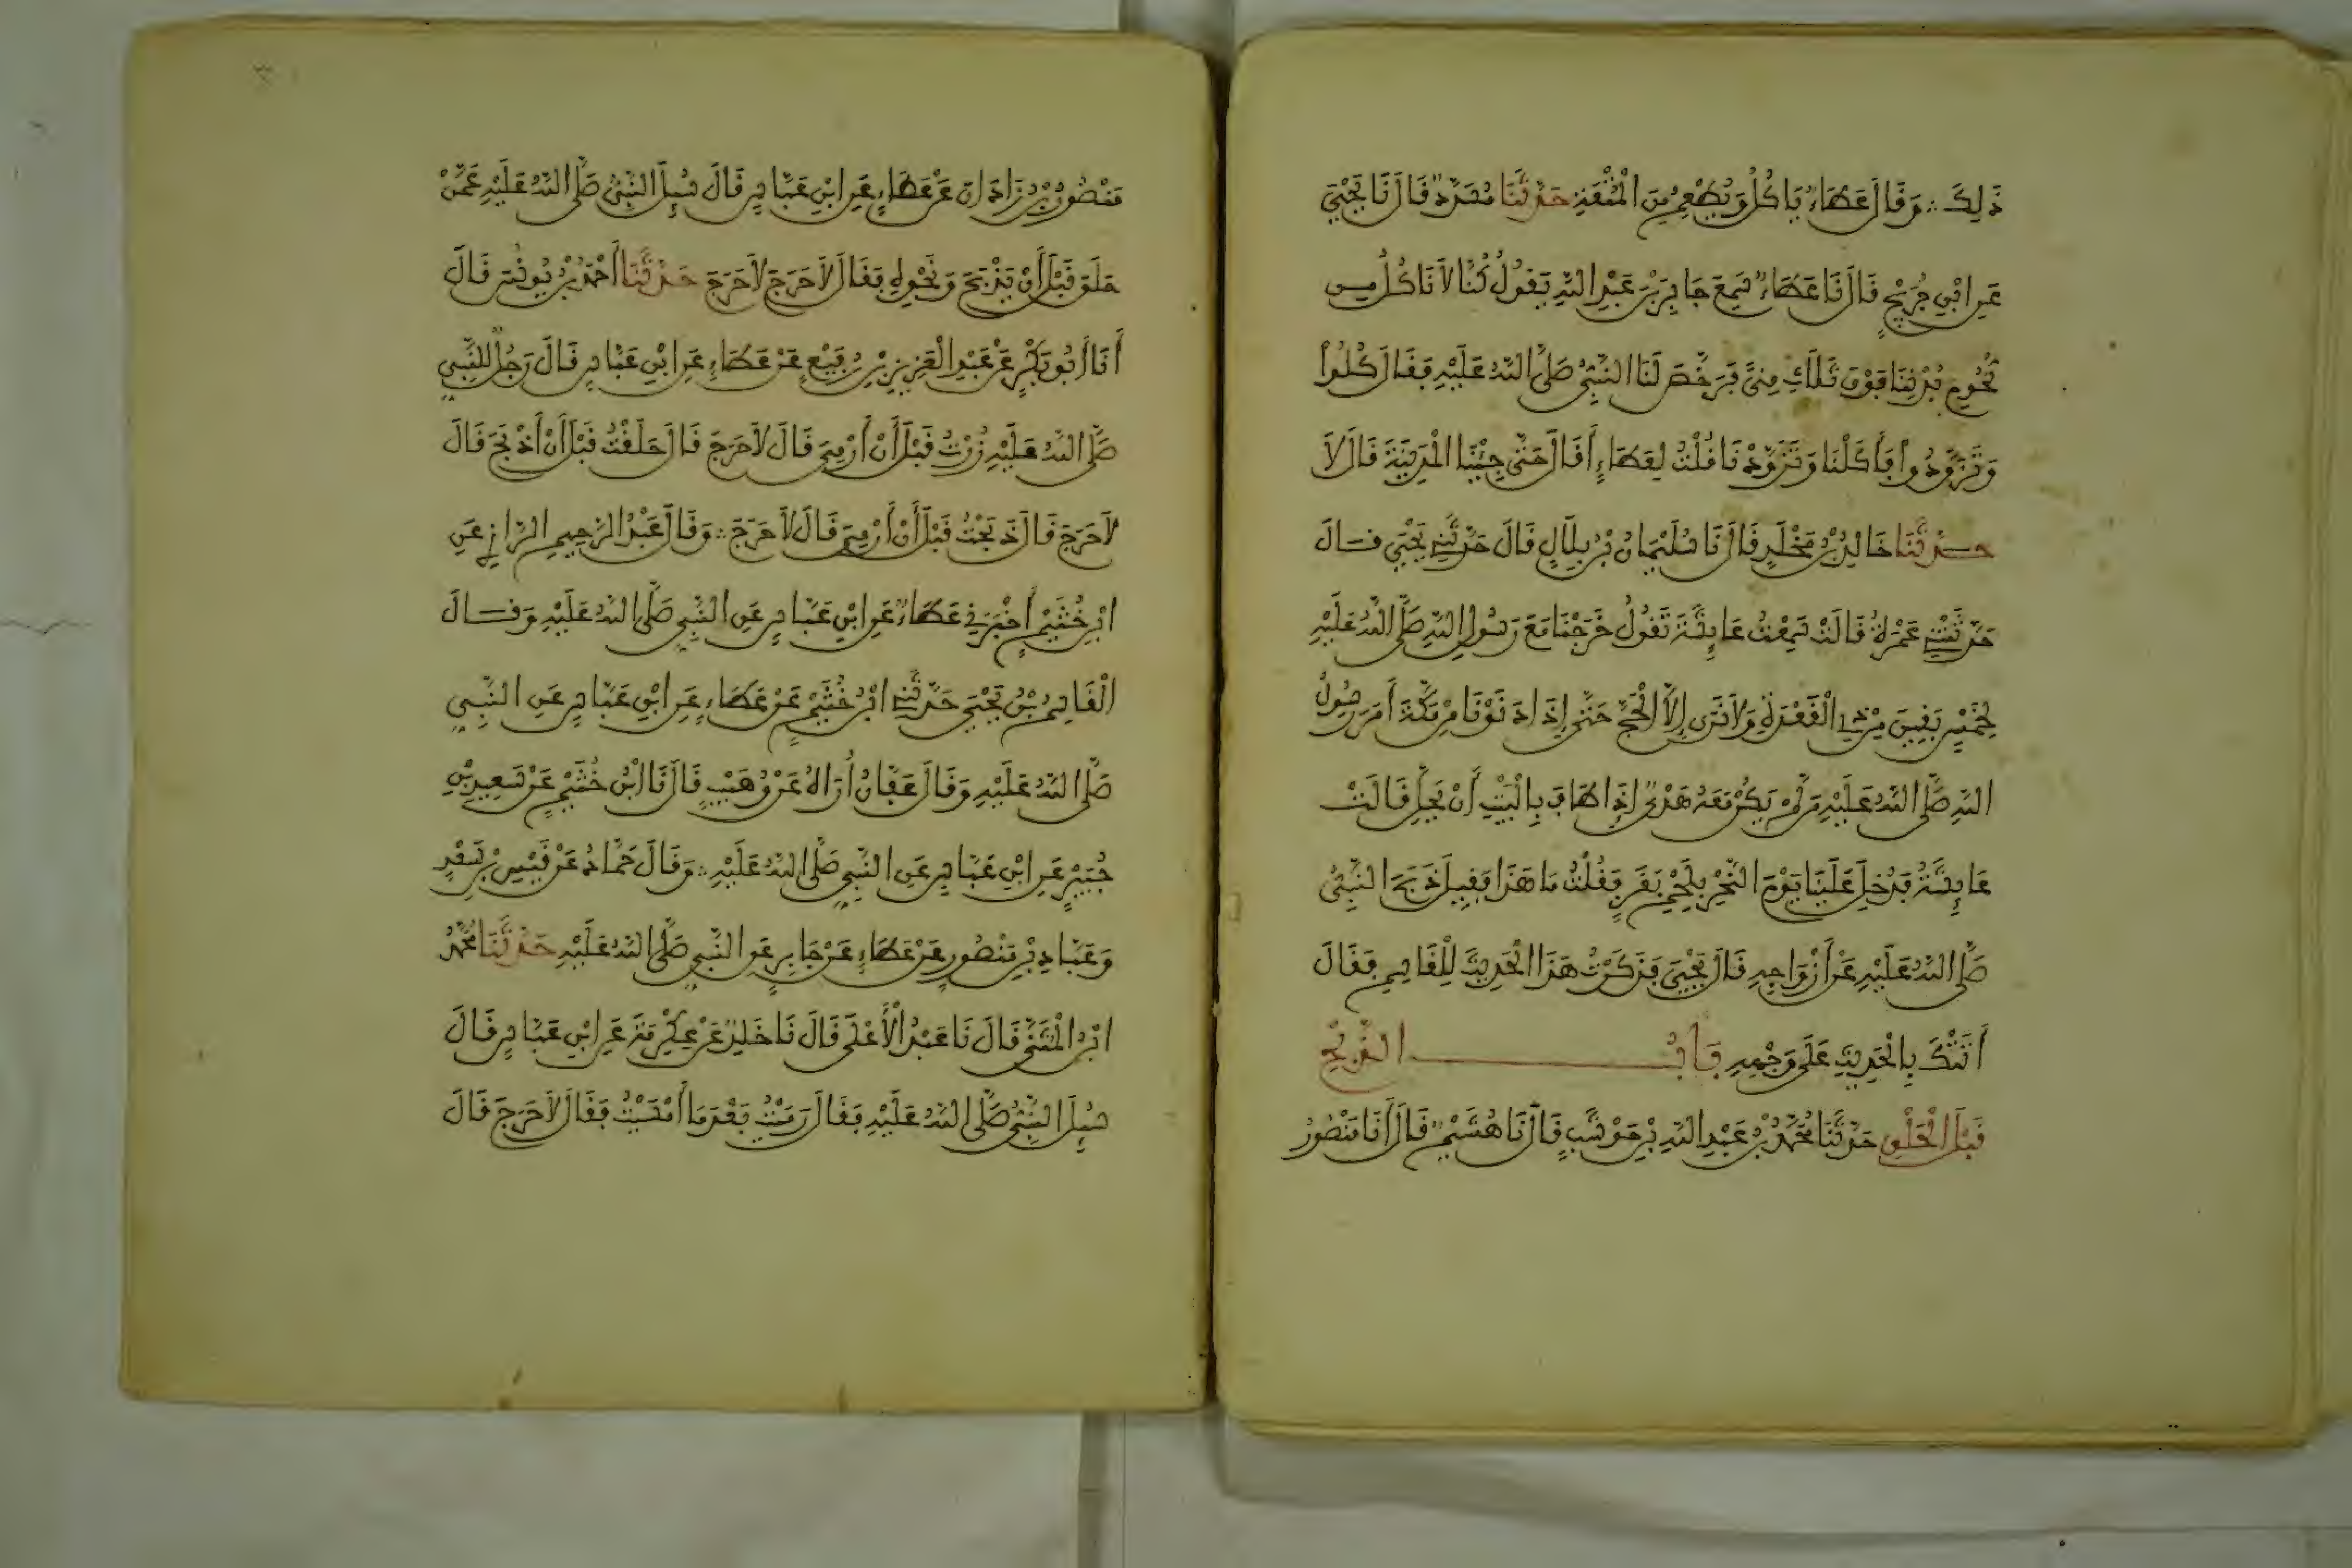 ذَلِكَ ∴ وَقَالَ عَطَاءٌ يَاكُلُ وَيُطْعِمُ مِنَ الْمُتْعَةِ حَدَّثَنَا مُسَدَّدٌ قَالَ نَا يَحْيَى
عَنِ ابْنِ جُرَيْجٍ قَالَ نَا عَطَاءٌ سَمِعَ جَابِرَ بْنَ عَبْدِ اللَّهِ يَقُولُ كُنَّا لَا نَاكُلُ مِن
لُحُومِ بُدْنِنَا فَوْقَ ثَلَاثِ مِنًى فَرَخَّصَ لَنَا النَّبِيُّ صَلَّى اللَّهُ عَلَيْهِ فَقَالَ كُلُوا
وَتَزَوَّدُوا فَأَكَلْنَا وَتَزَوَّدْنَا قُلْتُ لِعَطَاءٍ أَقَالَ حَتَّى جِئْنَا الْمَدِينَةَ قَالَ لَا
حَدَّثَنَا خَالِدُ بْنُ مَخْلَدٍ قَالَ نَا سُلَيْمَانُ بْنُ بِلَالٍ قَالَ حَدَّثَنِي يَحْيَى قَالَ
حَدَّثَتْنِي عَمْرَةُ قَالَتْ سَمِعْتُ عَائِشَةَ تَقُولُ خَرَجْنَا مَعَ رَسُولِ اللَّهِ صَلَّى اللَّهُ عَلَيْهِ
لِخَمْسٍ بَقِينَ مِنْ ذِي الْقَعْدَةِ وَلَا نَرَى إِلَّا الْحَجَّ حَتَّى إِذَا دَنَوْنَا مِنْ مَكَّةَ أَمَرَ رَسُولُ
اللَّهِ صَلَّى اللَّهُ عَلَيْهِ مَنْ لَمْ يَكُنْ مَعَهُ هَدْيٌ إِذَا طَافَ بِالْبَيْتِ أَنْ يَحِلَّ قَالَتْ
عَائِشَةُ فَدُخِلَ عَلَيْنَا يَوْمَ النَّحْرِ بِلَحْمِ بَقَرٍ فَقُلْتُ مَا هَذَا فَقِيلَ ذَبَحَ النَّبِيُّ
صَلَّى اللَّهُ عَلَيْهِ عَنْ أَزْوَاجِهِ قَالَ يَحْيَى فَذَكَرْتُ هَذَا الْحَدِيثَ لِلْقَاسِمِ فَقَالَ
أَتَتْكَ بِالْحَدِيثِ عَلَى وَجْهِهِ بَابُ الذَّبْحِ
قَبْلَ الْحَلْقِ حَدَّثَنَا مُحَمَّدُ بْنُ عَبْدِ اللَّهِ بْنِ حَوْشَبٍ قَالَ نَا هُشَيْمٌ قَالَ أَنَا مَنْصُورُ
مَنْصُورُ بْنُ زَاذَانَ عَنْ عَطَاءٍ عَنِ ابْنِ عَبَّاسٍ قَالَ سُئِلَ النَّبِيُّ صَلَّى اللَّهُ عَلَيْهِ عَمَّنْ
حَلَقَ قَبْلَ أَنْ يَذْبَحَ وَنَحْوِهِ فَقَالَ لَا حَرَجَ لَا حَرَجَ حَدَّثَنَا أَحْمَدُ بْنُ يُونُسَ قَالَ
أَنَا أَبُو بَكْرٍ عَنْ عَبْدِ الْعَزِيزِ بْنِ رُفَيْعٍ عَنْ عَطَاءٍ عَنِ ابْنِ عَبَّاسٍ قَالَ رَجُلٌ لِلنَّبِيِّ
صَلَّى اللَّهُ عَلَيْهِ زُرْتُ قَبْلَ أَنْ أَرْمِيَ قَالَ لَا حَرَجَ قَالَ حَلَقْتُ قَبْلَ أَنْ أَذْبَحَ قَالَ
لَا حَرَجَ قَالَ ذَبَحْتُ قَبْلَ أَنْ أَرْمِيَ قَالَ لَا حَرَجَ ∴ وَقَالَ عَبْدُ الرَّحِيمِ الرَّازِي عَنِ
ابْنِ خُثَيْمٍ أَخْبَرَنِي عَطَاءٌ عَنِ ابْنِ عَبَّاسٍ عَنِ النَّبِيِّ صَلَّى اللَّهُ عَلَيْهِ وَقَالَ
الْقَاسِمُ بْنُ يَحْيَى حَدَّثَنِي ابْنُ خُثَيْمٍ عَنْ عَطَاءٍ عَنِ ابْنِ عَبَّاسٍ عَنِ النَّبِيِّ
صَلَّى اللَّهُ عَلَيْهِ وَقَالَ عَفَّانُ أُرَاهُ عَنْ وُهَيْبٍ قَالَ نَا ابْنُ خُثَيْمٍ عَنْ سَعِيدِ بْنِ
جُبَيْرٍ عَنِ ابْنِ عَبَّاسٍ عَنِ النَّبِيِّ صَلَّى اللَّهُ عَلَيْهِ ∴ وَقَالَ حَمَّادٌ عَنْ قَيْسِ بْنِ سَعْدٍ
وَعَبَّادِ بْنِ مَنْصُورٍ عَنْ عَطَاءٍ عَنْ جَابِرٍ عَنِ النَّبِيِّ صَلَّى اللَّهُ عَلَيْهِ حَدَّثَنَا مُحَمَّدُ
ابْنُ الْمُثَنَّى قَالَ نَا عَبْدُ الْأَعْلَى قَالَ نَا خَالِدٌ عَنْ عِكْرِمَةَ عَنِ ابْنِ عَبَّاسٍ قَالَ
سُئِلَ النَّبِيُّ صَلَّى اللَّهُ عَلَيْهِ فَقَالَ رَمَيْتُ بَعْدَ مَا أَمْسَيْتُ فَقَالَ لَا حَرَجَ قَالَ